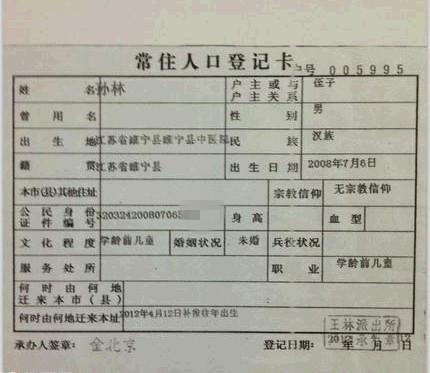 常住人口登记卡
户号 005995
姓名 孙林 户主或与户主关系 侄子
曾用名 性别 男
出生地 江苏省睢宁县睢宁县中医院 民族 汉族
籍贯 江苏省睢宁县 出生日期 2008年7月6日
本市(县)其他住址 宗教信仰 无宗教信仰
公民身份证件编号 32032420080706 身高 血型
文化程度 学龄前儿童 婚姻状况 未婚 兵役状况
服务处所 职业 学龄前儿童
何时由何地迁来本市(县)
何时由何地迁来本址 2012年4月12日补报往年出生
王林派出所
承办人签章: 金北京 登记日期: 年 月 日